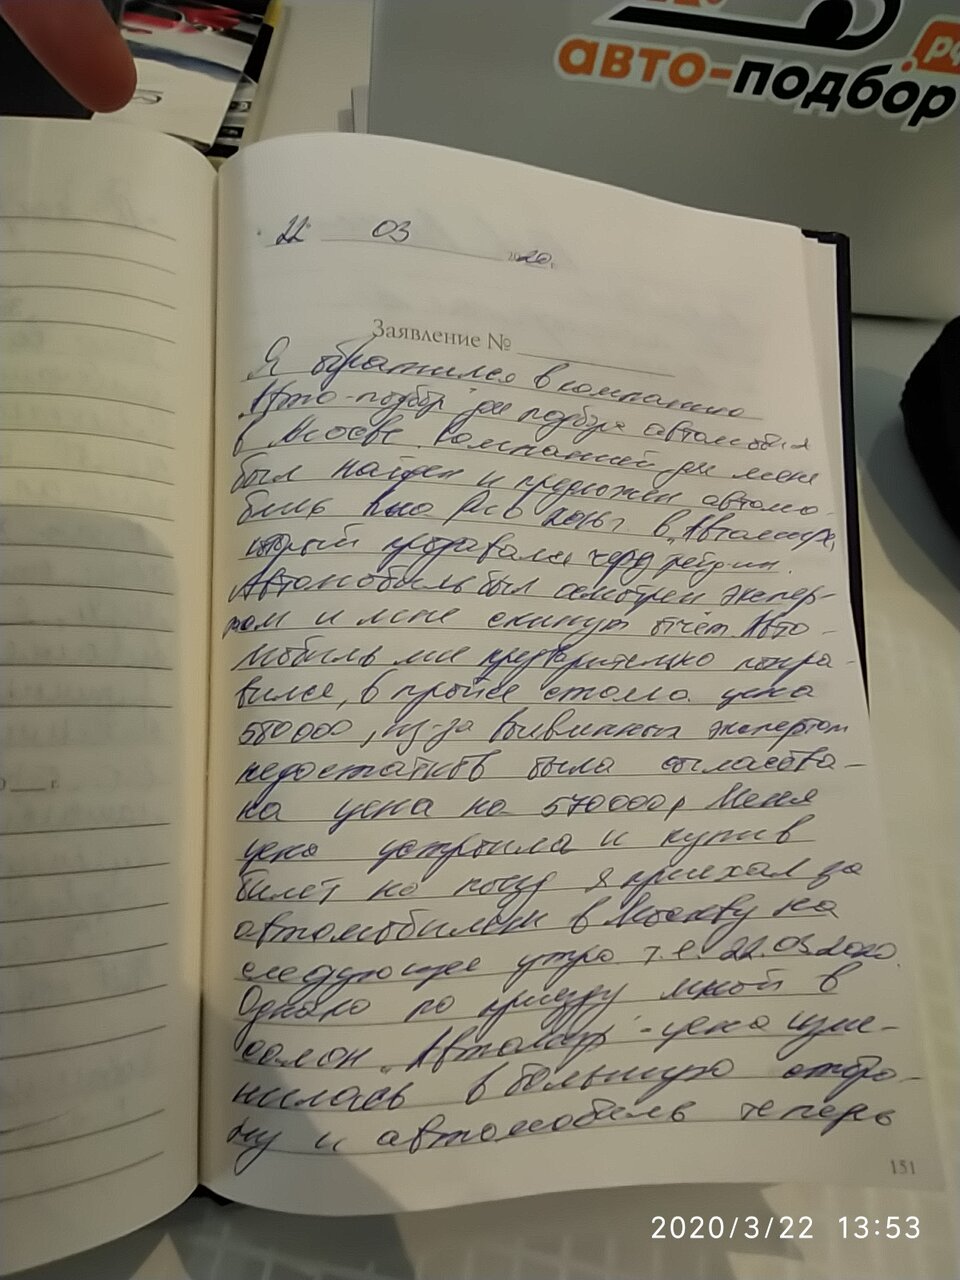 авто-подбор.рф
22 03
2020 г.
Заявление №
Я обратился в компанию
"Авто-подбор" для подбора автомобиля
в Москве. Компанией для меня
был найден и предложен автомо-
биль Киа Рио 2016г в "Автомире",
который продавался через трейдин.
Автомобиль был осмотрен экспер-
том и мне скинут отчёт. Авто-
мобиль мне предварительно понра-
вился, в прайсе стояла цена
580000, из-за выявленных экспертом
недостатков была согласова-
на цена на 570000р. Меня
цена устроила и купив
билет на поезд я приехал за
автомобилем в Москву на
следующее утро т.е. 22.03.2020.
Однако по приезду мной в
салон "Автомир" - цена изме-
нилась в большую сторо-
ну и автомобиль теперь
151
2020/3/22 13:53